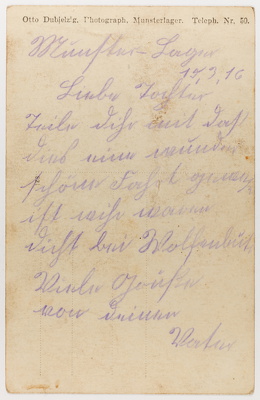 Otto Dubjelzig, Photograph, Munsterlager. Teleph. Nr. 50.
Munster-Lager
15,3,16
Liebe Tochter
Teile dihr mit daß
dies eine wunder
schöne Fahrt gewes
ist wihr waren
dicht bei Wolfenbütt.
Viele Grüße
von deinen
Vater